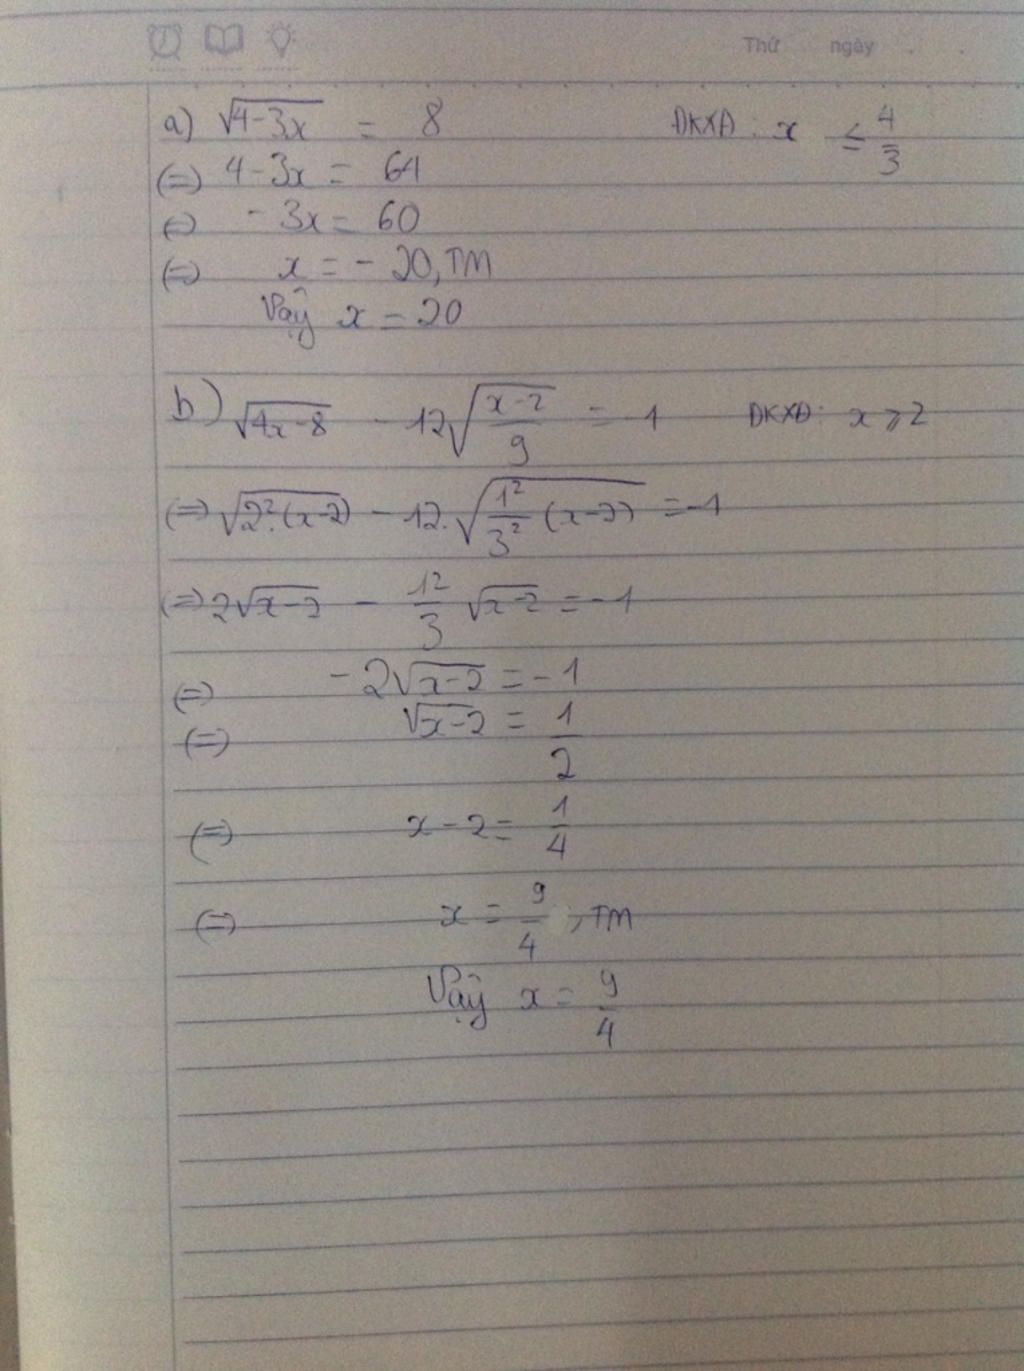 Thứ ngày
a) √(4-3x) = 8 ĐKXĐ: x ≤ 4/3
(=) 4-3x = 64
(=) -3x = 60
(=) x = -20, TM
Vậy x = 20
b) √(4x-8) - 12√((x-2)/9) = -1 ĐKXĐ: x ⩾ 2
(=) √(2².(x-2)) - 12.√(1²/3² (x-2)) = -1
(=) 2√(x-2) - 12/3 √(x-2) = -1
(=) -2√(x-2) = -1
(=) √(x-2) = 1/2
(=) x-2 = 1/4
(=) x = 9/4, TM
Vậy x = 9/4